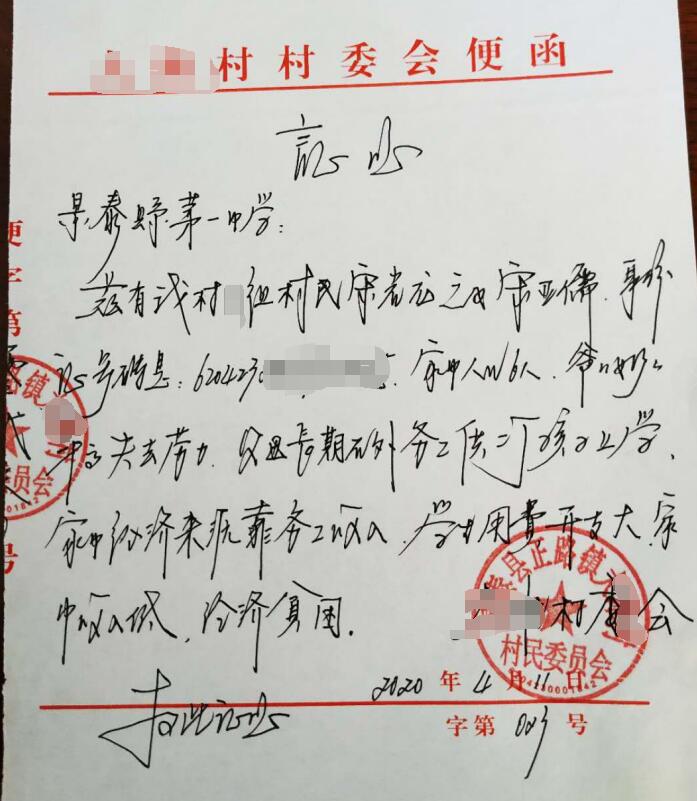 村村委会便函
证明
景泰县第一中学：
兹有我村 组村民宋 之女宋亚儒，身份
证号码是：6204230 家中人口6人，爷爷奶奶
年高失去劳力，父母长期在外务工供二个孩子上学，
家中经济来源靠务工收入，学生用费开支大，家
中收入低，经济贫困。
村委会
特此证明
2020年4月11日
字第 号
县正路镇
村民委员会
路镇
委员会
便字第
号